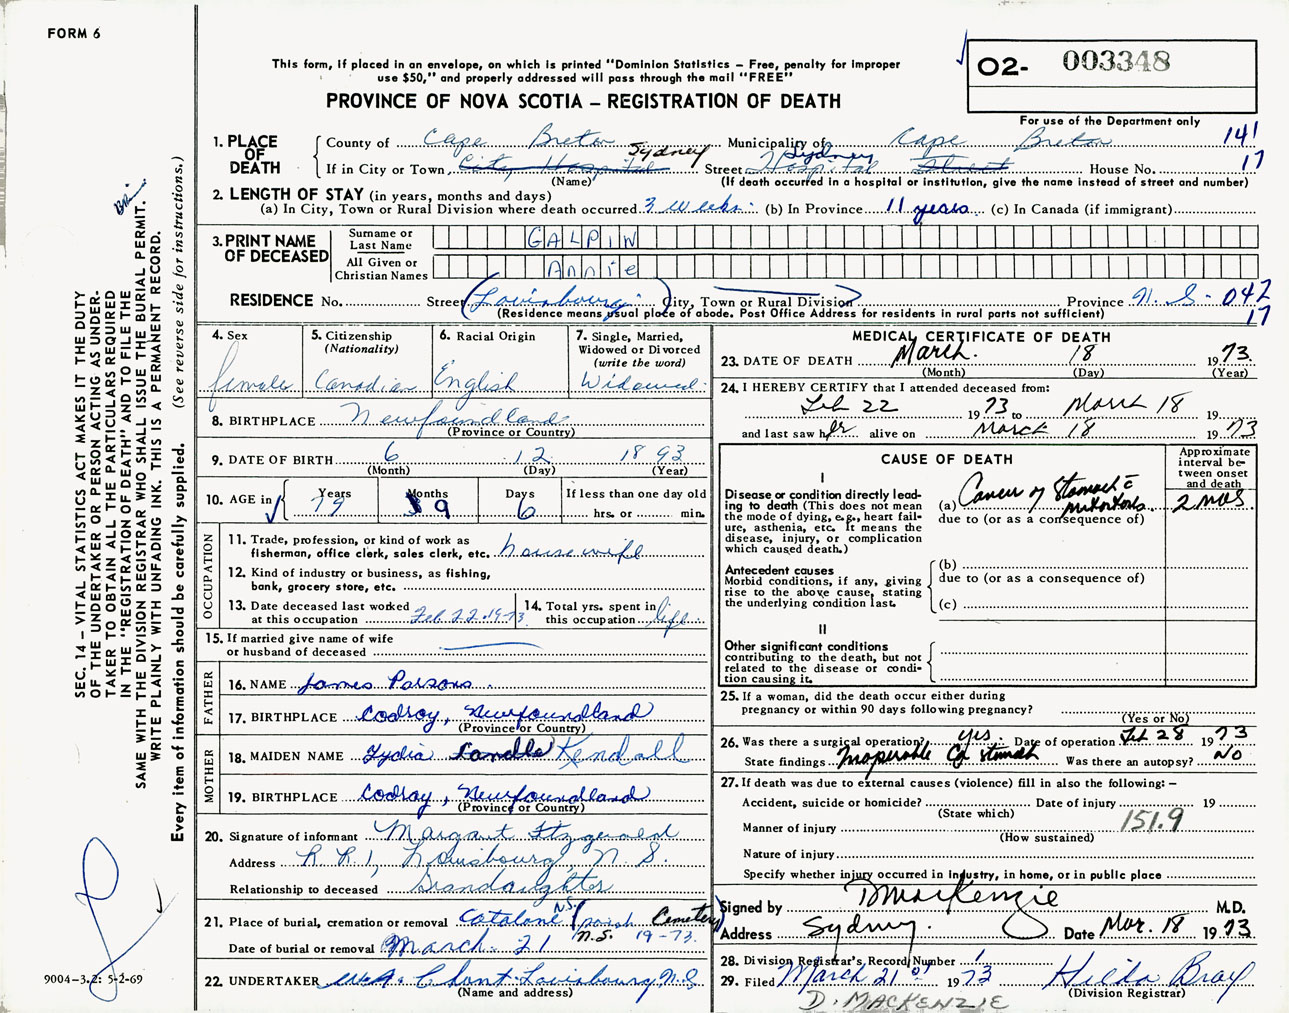 FORM 6
This form, if placed in an envelope, on which is printed "Dominion Statistics – Free, penalty for improper
use $50," and properly addressed will pass through the mail "FREE"
PROVINCE OF NOVA SCOTIA – REGISTRATION OF DEATH
O2- 003348
For use of the Department only
141
17
1. PLACE OF DEATH
County of Cape Breton Municipality of Cape Breton
If in City or Town, City Hospital Sydney Street Sydney Hospital Street House No.
(Name) (If death occurred in a hospital or institution, give the name instead of street and number)
2. LENGTH OF STAY (in years, months and days)
(a) In City, Town or Rural Division where death occurred 3 weeks (b) In Province 11 years (c) In Canada (if immigrant)
3. PRINT NAME OF DECEASED
Surname or Last Name GALPIN
All Given or Christian Names Annie
RESIDENCE No. Street (Louisbourg) City, Town or Rural Division Province N. S. 042
17
(Residence means usual place of abode. Post Office Address for residents in rural parts not sufficient)
4. Sex
female
5. Citizenship
(Nationality)
Canadian
6. Racial Origin
English
7. Single, Married,
Widowed or Divorced
(write the word)
Widowed
8. BIRTHPLACE Newfoundland
(Province or Country)
9. DATE OF BIRTH 6 12 1893
(Month) (Day) (Year)
10. AGE in Years Months Days If less than one day old
79 9 6 hrs. or min.
OCCUPATION
11. Trade, profession, or kind of work as
fisherman, office clerk, sales clerk, etc. housewife
12. Kind of industry or business, as fishing,
bank, grocery store, etc.
13. Date deceased last worked
at this occupation Feb 22-1973
14. Total yrs. spent in
this occupation life
15. If married give name of wife
or husband of deceased
FATHER
16. NAME James Parsons
17. BIRTHPLACE Codroy, Newfoundland
(Province or Country)
MOTHER
18. MAIDEN NAME Lydia Kendall
19. BIRTHPLACE Codroy, Newfoundland
(Province or Country)
20. Signature of informant Margaret Fitzgerald
Address R. R. 1, Louisbourg, N. S.
Relationship to deceased Grandaughter
21. Place of burial, cremation or removal Catalone N.S. (parish Cemetery) N.S.
Date of burial or removal March 21 19-73
22. UNDERTAKER Louisbourg, N.S
(Name and address)
MEDICAL CERTIFICATE OF DEATH
23. DATE OF DEATH March 18 1973
(Month) (Day) (Year)
24. I HEREBY CERTIFY that I attended deceased from:
Feb 22 1973 to March 18 19
and last saw her alive on March 18 1973
CAUSE OF DEATH
Approximate interval between onset and death
I
Disease or condition directly leading to death (This does not mean the mode of dying, e.g., heart failure, asthenia, etc. It means the disease, injury, or complication which caused death.)
(a) Cancer of Stomach c̄ 2 mos
due to (or as a consequence of)
Antecedent causes
Morbid conditions, if any, giving rise to the above cause, stating the underlying condition last.
(b)
due to (or as a consequence of)
(c)
II
Other significant conditions
contributing to the death, but not related to the disease or condition causing it.
25. If a woman, did the death occur either during
pregnancy or within 90 days following pregnancy?
(Yes or No)
26. Was there a surgical operation? yes. Date of operation Feb 28 1973
State findings Inoperable Ca stomach Was there an autopsy? No
27. If death was due to external causes (violence) fill in also the following: –
Accident, suicide or homicide? Date of injury 19
(State which)
Manner of injury 151.9
(How sustained)
Nature of injury
Specify whether injury occurred in Industry, in home, or in public place
Signed by D MacKenzie M.D.
Address Sydney. Date Mar. 18 1973
28. Division Registrar's Record Number 1
29. Filed March 21 1973 Hilda Bray
(Division Registrar)
D. MACKENZIE
SEC. 14 – VITAL STATISTICS ACT MAKES IT THE DUTY
OF THE UNDERTAKER OR PERSON ACTING AS UNDER-
TAKER TO OBTAIN ALL THE PARTICULARS REQUIRED
IN THE "REGISTRATION OF DEATH" AND TO FILE THE
SAME WITH THE DIVISION REGISTRAR WHO SHALL ISSUE THE BURIAL PERMIT.
WRITE PLAINLY WITH UNFADING INK. THIS IS A PERMANENT RECORD.
Every item of information should be carefully supplied. (See reverse side for instructions.)
9004-3.2: 5-2-69